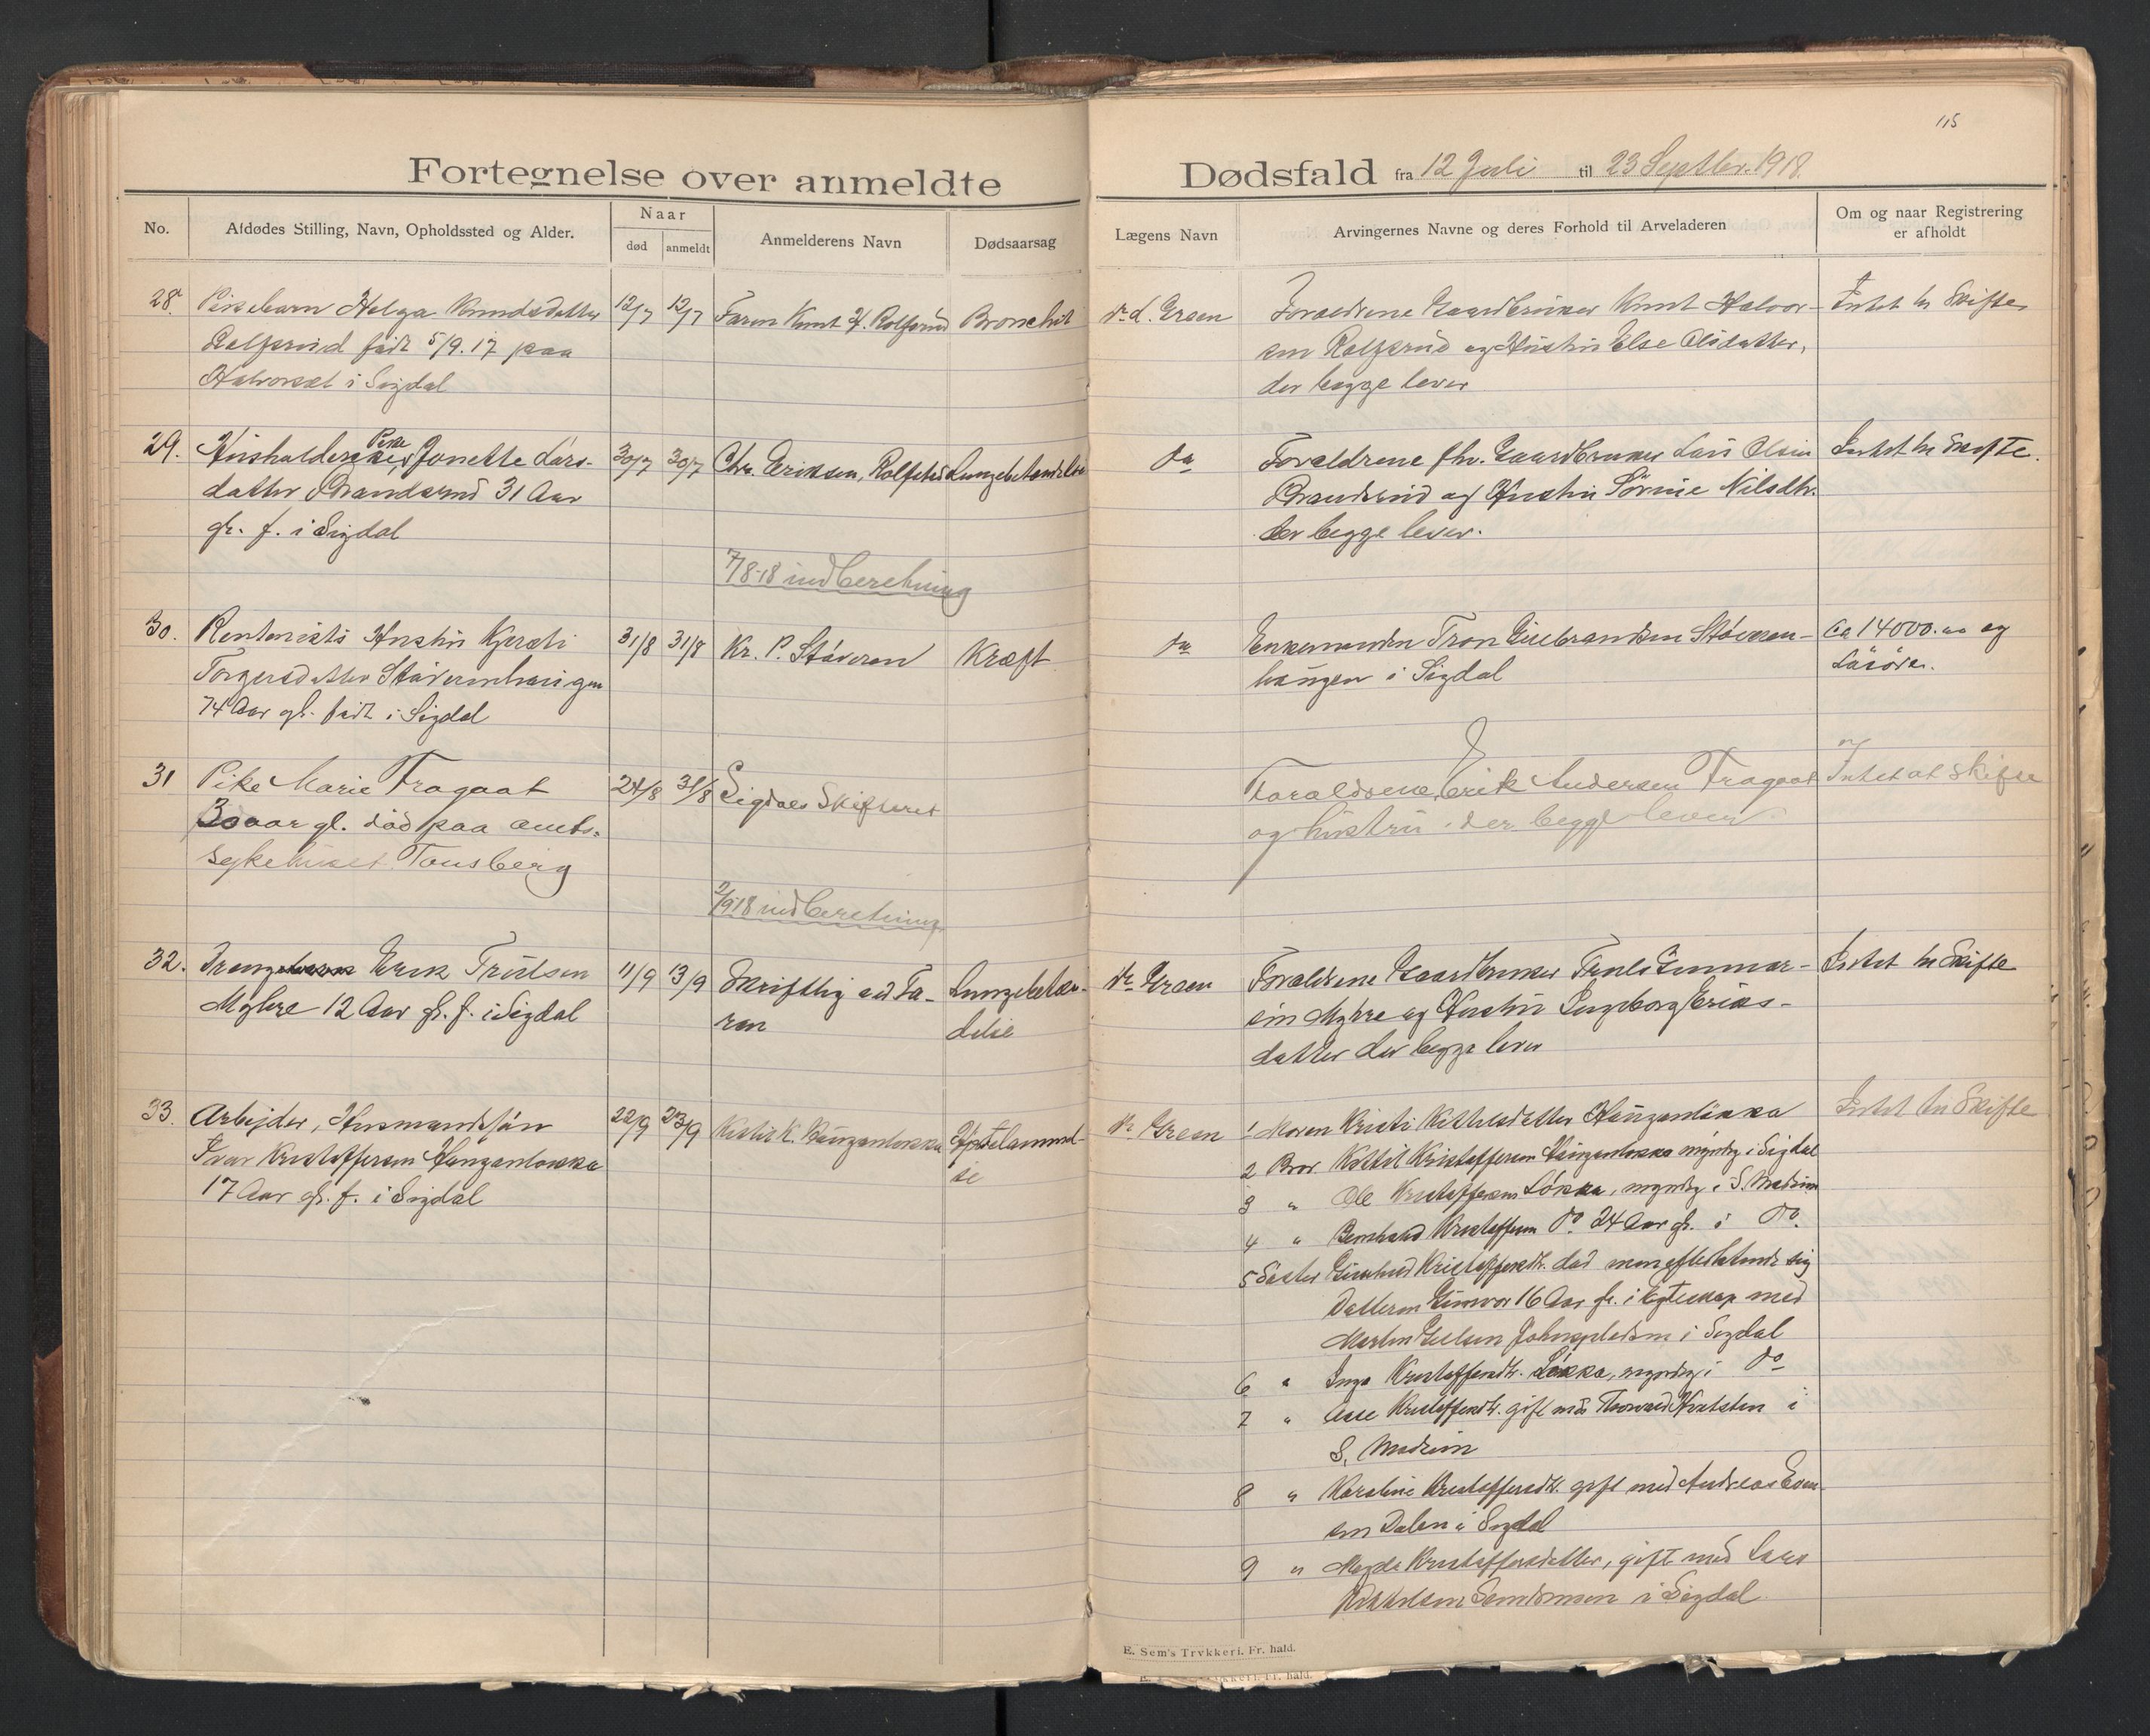 115
Fortegnelse over anmeldte Dødsfald fra 12 Juli til 23 Septbr. 1918.
No.
Afdødes Stilling, Navn, Opholdssted og Alder.
Naar
død
anmeldt
Anmelderens Navn
Dødsaarsag
Lægens Navn
Arvingernes Navne og deres Forhold til Arveladeren
Om og naar Registrering
er afholdt
28. Pikebarn Helga Knudsdatter 12/7 12/7 Faren Knut H. Rolfsrud Bronchit
Rolfsrud født 5/9.17 paa
Halvorset i Sigdal
dr. L. Graen
Forældrene Gaardbruker Knut Halvor-
sen Rolfsrud og Hustru Else Olsdatter,
der begge lever
Intet in Skifte
29. Husholderske, Pike Jonette Lars- 30/7 30/7 Chr. Eriksen, Rolfstad Lungebetændelse
datter Brandsrud 31 Aar
gl. f. i Sigdal
do
Forældrene fhv. Gaardbruker Lars Olsen
Brandsrud og Hustru Sørine Nilsdtr.
der begge lever.
Intet in Skifte.
7/8-18 indberetning
30. Rentenists Hustru Kjersti 31/8 31/8 Kr. P. Støveren Kræft
Torgersdatter Støvernhaugen
74 Aar gl. født i Sigdal
do
Enkemanden Tron Gulbrandsen Støveren-
haugen i Sigdal
ca 14000.00 og
Løsøre.
31 Pike Marie Fragaat 24/8 31/8 Sigdals Skifteret
30 aar gl. død paa amts-
sykehuset Tønsberg
Forældrene, Erik Andersen Fragaat
og hustru der begge lever
Intet at skifte
2/9-18 indberetning
32. Dreng Erik Trulsen 11/9 13/9 Skriftlig ved Fa- Lungebetæn-
Myhre 12 Aar gl. f. i Sigdal ren delse
Dr. Graen
Forældrene Gaardbruker Truls Gunnar-
sen Myhre og Hustru Ingeborg Eriks-
datter der begge lever
Intet in Skifte
33. Arbejder, Husmandssøn 22/9 23/9 Kittil K. Haugenløkka
Ivar Kristoffersen Haugenløkka
17 Aar gl. f. i Sigdal
Dr. Graen
1 Moren Kristi Kittilsdatter Haugenløkka
2 Bror Kittil Kristoffersen Haugenløkka myndig i Sigdal
3 " Ole Kristoffersen Løkka, myndig i S. Modum
4 " Bernhard Kristoffersen do 24 Aar gl. i do.
5 Søster Gunhild Kristoffersdtr. død men efterlatende sig
Datteren Gunvor 16 Aar gl. i Egteskap med
Martin i Sigdal
6 " Inga Kristoffersdtr. Løkka, myndig i do
7 " Aase Kristoffersdtr. gift med Thorvald i
S. Modum
8 " Karoline Kristoffersdtr. gift med Andreas Even-
sen Dalen i Sigdal
9 " Magda Kristoffersdatter, gift med Lars
i Sigdal
Intet in Skifte
E. Sem's Trykkeri. Fr. hald.